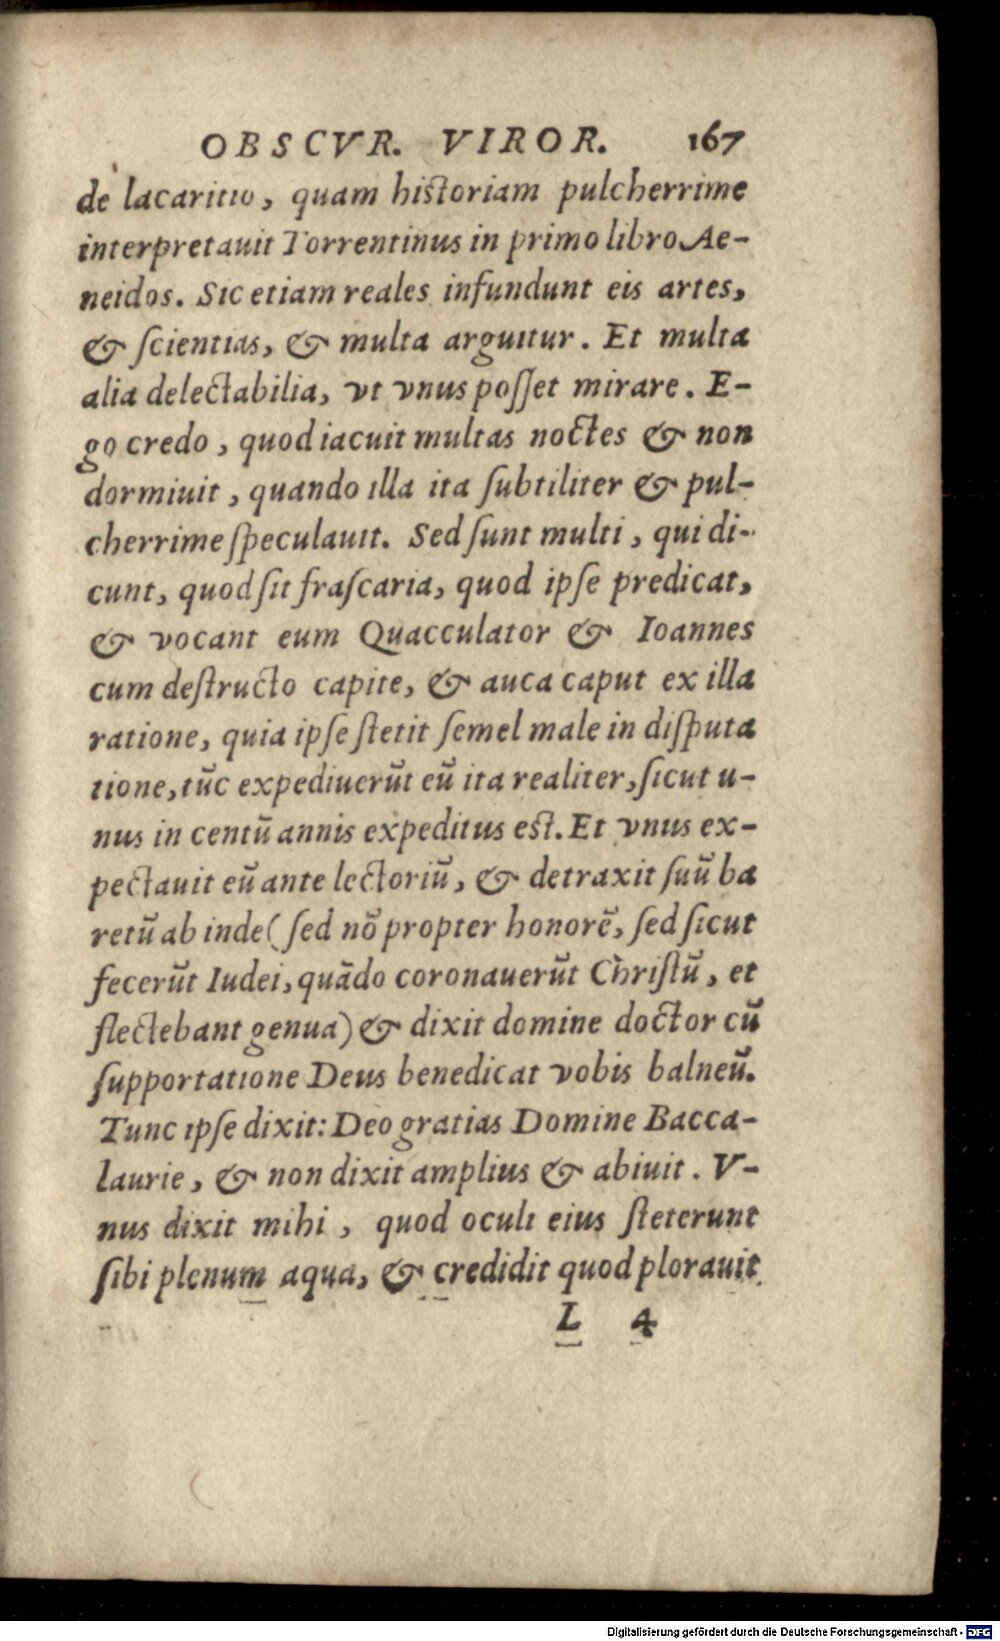 OBSCVR. VIROR. 167
de lacaritio, quam historiam pulcherrime
interpretauit Torrentinus in primo libro Ae-
neidos. Sic etiam reales infundunt eis artes,
& ſcientias, & multa arguitur. Et multa
alia delectabilia, vt vnus poſſet mirare. E-
go credo, quod iacuit multas noctes & non
dormiuit, quando illa ita ſubtiliter & pul-
cherrime ſpeculauit. Sed ſunt multi, qui di-
cunt, quod ſit fraſcaria, quod ipſe predicat,
& vocant eum Quacculator & Ioannes
cum deſtructo capite, & auca caput ex illa
ratione, quia ipſe ſtetit ſemel male in diſputa
tione, tūc expediuerūt eū ita realiter, ſicut u-
nus in centū annis expeditus eſt. Et vnus ex-
pectauit eū ante lectoriū, & detraxit ſuū ba
retū ab inde (ſed nō propter honorē, ſed ſicut
fecerūt Iudei, quādo coronauerūt Chriſtū, et
flectebant genua) & dixit domine doctor cū
ſupportatione Deus benedicat vobis balneū.
Tunc ipſe dixit: Deo gratias Domine Bacca-
laurie, & non dixit amplius & abiuit. V-
nus dixit mihi, quod oculi eius ſteterunt
ſibi plenum aqua, & credidit quod plorauit
L 4
Digitalisierung gefördert durch die Deutsche Forschungsgemeinschaft - DFG